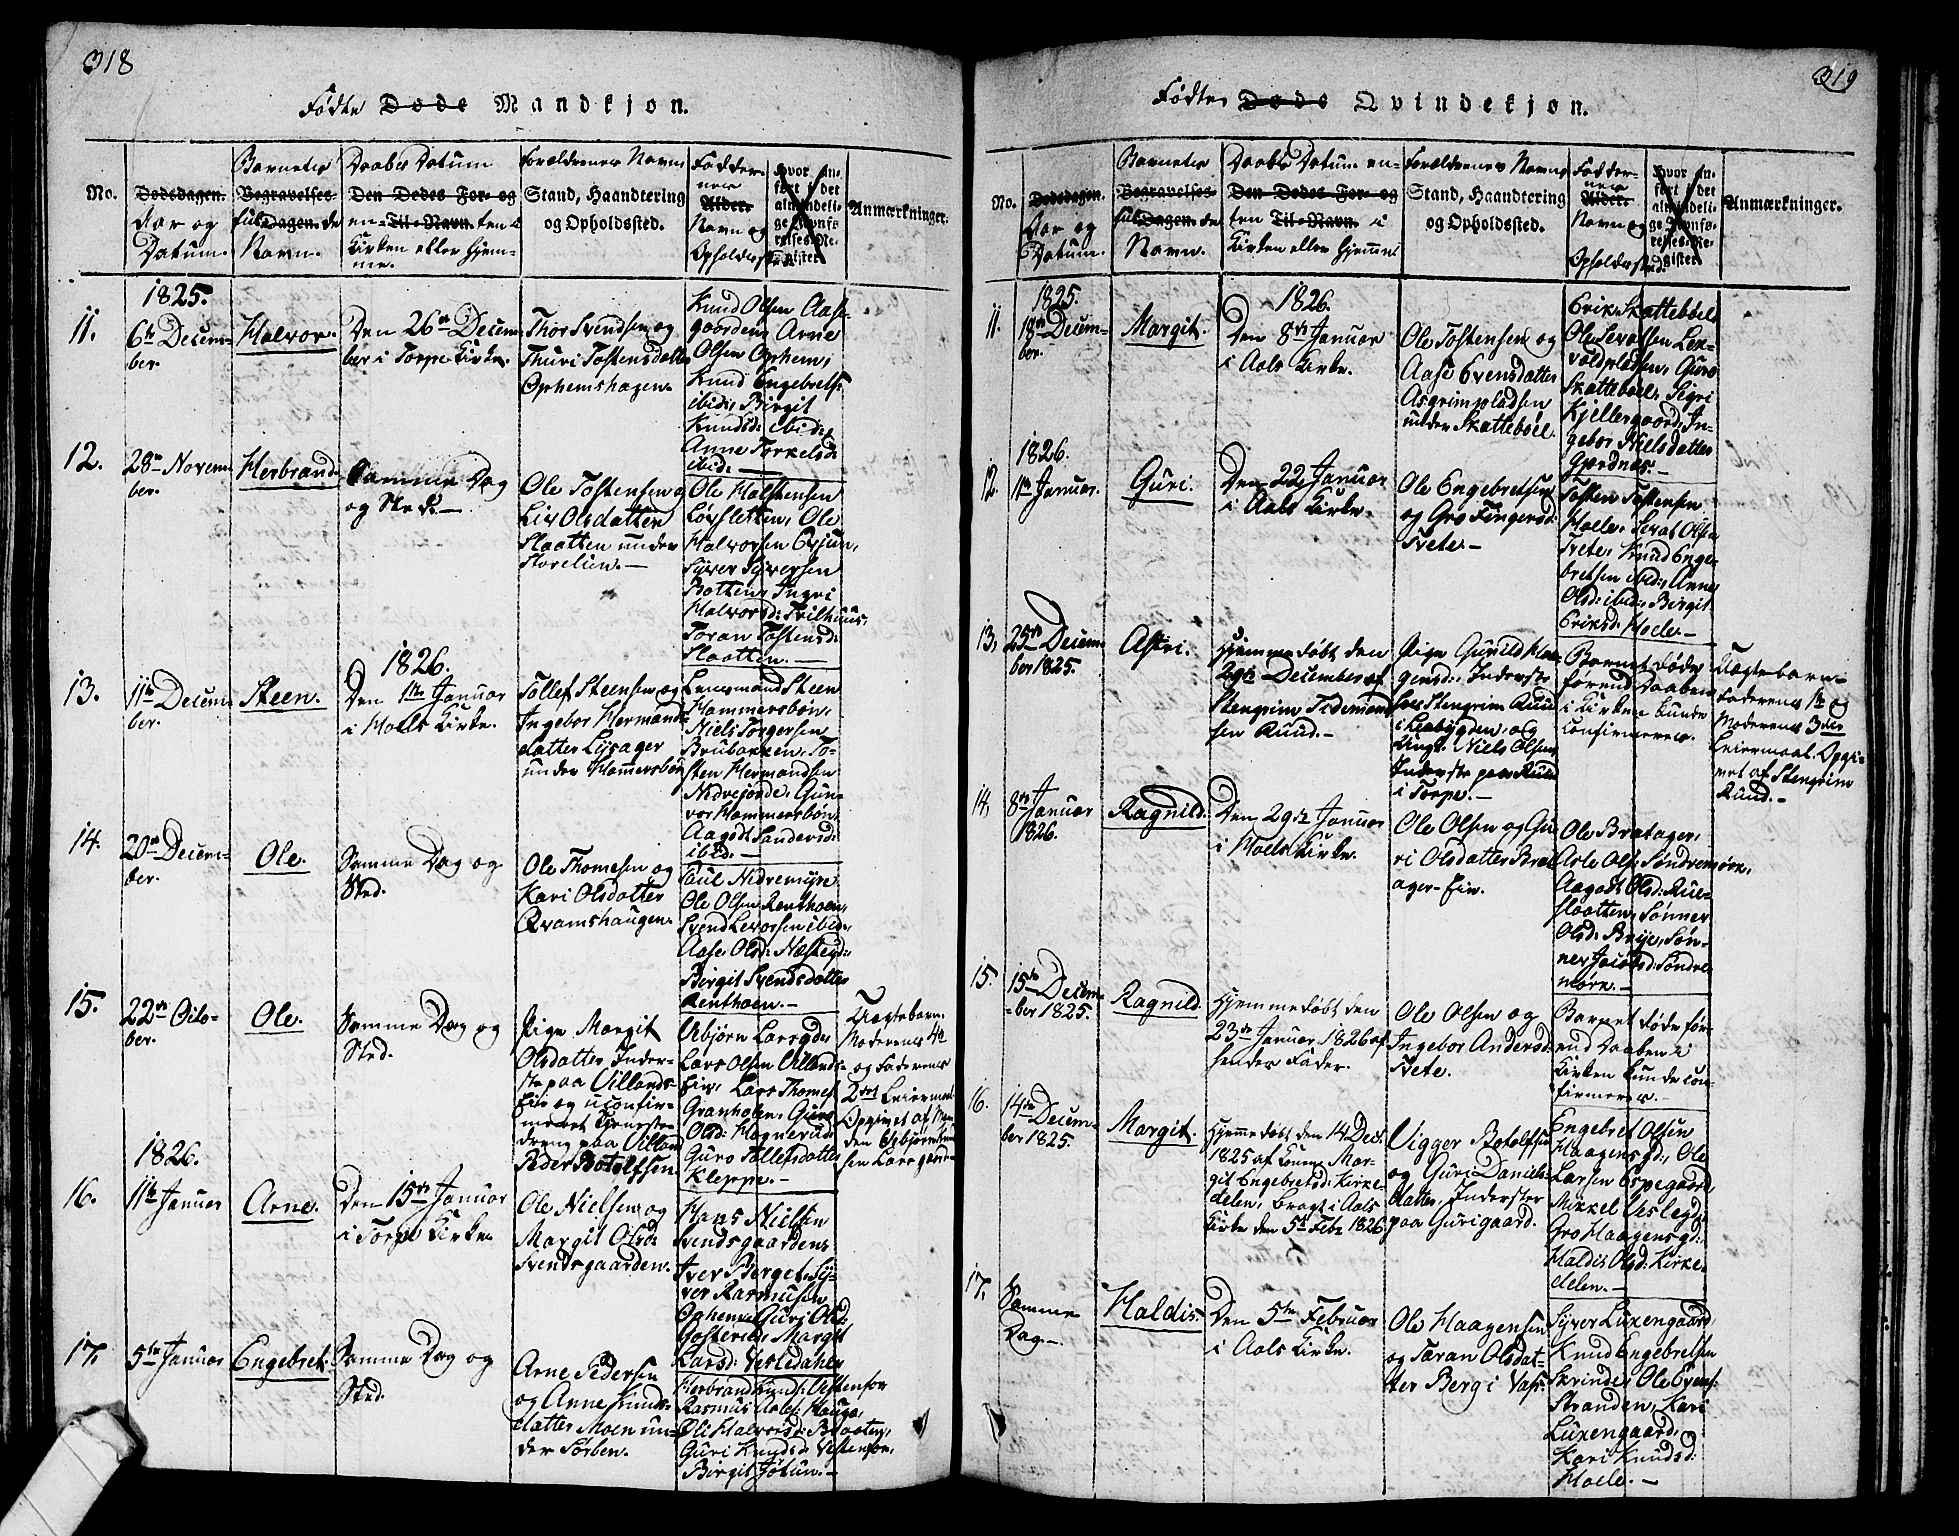 318
Födte Døde Mandkjøn.
No.
Dødsdagen.
Aar og
Datum.
Barnetes
Begravelses
fulDagen.de
Navn.
Daabs Datum
Den Dødes For- og
en- Til-Navn. ten i
Kirken eller Hjem-
me.
Forældrenes Navn
Stand, Haandtering
og Opholdssted.
Fadder-
nes
Alder.
Navn og
Opholdssted.
Hvor an-
ført i det
almindeli-
ge Jevnfø-
relses-Re-
gister.
Anmærkninger.
11.
1825.
6te Decem-
ber.
Halvor.
Den 26de Decem-
ber i Torpe Kirke.
Thor Svendsen og
Thuri Tostensdatter
Ophemshagen.
Knud Olsen Aase-
gaarden, Arne
Olsen Ophem,
Knud Engebrets:
ibid:, Birgit
Knudsd: ibid:,
Anne Torkelsd:
ibid:—
12.
28de Novem-
ber.
Herbrand.
Samme Dag
og Sted.—
Ole Tostensen og
Liv Olsdatter
Slaatten under
Storelien.—
Ole Halstensen
Løvsletten, Ole
Halvorsen Evjun,
Syver Syversen
Botten, Ingri
Halvorsd: Trilhuus,
Toran Tostensd:
Slaatten.—
13.
11te Decem-
ber.
Steen.
1826.
Den 1te Januar
i Hoels Kirke.
Tollef Steensen og
Ingebor Hermands-
datter Lysager
under Hammersbøn
Lensmand Steen
Hammersbøn,
Niels Torgersen
Brubakken, To-
sten Hermandsen
Nidrejorde, Gun-
vor Hammersbøn,
Aagodt Sandersd:
ibid.—
14.
20de Decem-
ber.
Ole.
Samme Dag og
Sted.
Ole Thomesen og
Kari Olsdatter
Qvamshaugen.
Paul Nidremyre
Ole Olsen Renthoen,
Svend Levorsen ibid:,
Aase Olsd: Næsteqd:
Birgit Svendsdatter
Renthoen.—
15.
22de Octo-
ber.
Ole.
Samme Dag og
Sted.
Pige Margit
Olsdatter Inder-
ste paa Villands-
Eie og uconfir-
meret Tjeneste-
dreng paa Villand
Peder Botolfsen.
Asbjörn Larsgde
Lars Olsen Villands-
Eie, Lars Thomes:
Granholen, Guro
Olsd: Hagnerud
Guro Tollefsdatter
Kleppe.—
Uægtebarn.
Moderens 4de
og Faderens
2det Leiermaal.
Opgivet af Man-
den Asbjörn Knud-
sen Larsgaarde
16.
1826.
11te Januar
Arne.
Den 15de Januar
i Torpe Kirke.
Ole Nielsen og
Margit Olsd:
Svendsgaarden.
Hans Nielsen
Svendsgaarden,
Iver Berget, Sy-
ver Rasmusen
Ophem, Guri Olsd:
Gosterid, Margit
Larsd: Vesledahlen
17.
5te Januar
Engebret.
Samme Dag og
Sted.
Arne Pedersen
og Anne Knuds-
datter Moen un-
der Sørben.
Herbrand Knuds: Vestenfor
Rasmus Aoles: Hauga,
Oli Halvorsd: Braaten,
Guri Knudsd: Vestenfor,
Birgit Jøtun.—
319
Födte Døde Qvindekjøn.
No.
Dødsdagen.
Aar og
Datum.
Barnetes
Begravelses-
fulDagen.de
Navn.
Daabs Datum en-
Den Dødes For- og
ten Til-Navn. i
Kirken eller Hjemme
Forældrenes Navn
Stand, Haandtering
og Opholdssted.
Fadder-
nes
Alder.
Navn og
Opholdssted.
Hvor an-
ført i det
almindeli-
ge Jevnfø-
relses-Re-
gister.
Anmærkninger.
11.
1825.
18de Decem-
ber.
Margit.
1826.
Den 8de Januar
i Aals Kirke.
Ole Tostensen og
Aase Evensdatter
Asgrimpladsen
under Skatteboel.
Erik Skatteböel
Ole Sevatsen Lex-
voldpladsen, Guro
Skatteböel, Sigri
Kjellergaard, In-
gebor Nielsdatter
Gjerdnas.—
12.
1826.
11te Januar.
Guri.
Den 22de Januar
i Aals Kirke.
Ole Engebretsen
og Gro Fingersd:
Tvete.—
Tosten Tostensen
Hoele, Sevat Olsen
Tvete, Knud Enge-
bretsen ibid:, Arne
Olsd: ibid:, Birgit
Eriksd: Hoele.—
13.
25de Decem-
ber 1825.
Astri.
Hjemmedöbt den
29de December af
Stengrim Tidemand-
sen Ruud.—
Pige Gunild Haa-
gensd: Inderste
hos Stengrim Ruud
i Leabygden, og
Ungk: Niels Olsen
Inderste paa Ruud
i Torpe.—
Barnet döde
förend Daaben
i Kirken kunde
confirmeres.
Uægtebarn
Faderens 1te og
Moderens 3die
Leiermaal. Opgi-
vet af Stengrim
Ruud.—
14.
8de Januar
1826.
Ragnild.
Den 29de Januar
i Hoels Kirke.
Ole Olsen og Gu-
ri Olsdatter Brat-
ager-Eie.
Ole Bratager,
Asle Ols: Söndremöre,
Aagodt Olsd: Rue-
slaatten, Sönner
Olsd: Brye, Søn-
nev Jacobsd: Söndre
möre.—
15.
15de Decem-
ber 1825.
Ragnild.
Hjemmedöbt den
23de Januar 1826 af
hendes Fader.
Ole Olsen og
Ingebor Andersd:
Tvete.
Barnet döde för-
end Daaben i
Kirken kunde con-
firmeres.—
16.
14de Decem-
ber 1825.
Margit.
Hjemmedöbt den 14 Dec:
1825 af Konen Mar-
git Engebretsd: Kirke-
delen, bragt i Aals
Kirke den 5te Febr 1826
Vigger Botolfsen
og Guri Daniels-
datter, Inderster
paa Gurigaard.
Engebret Olsen
Haagensgd:, Ole
Larsen Espegaard,
Mikkel Veslegd:,
Gro Haagensgd:
Haldis Olsd: Kirke-
delen.—
17.
Samme
Dag.—
Haldis.
Den 5te Februar
i Aals Kirke.
Ole Haagensen
og Taran Olsdat-
ter Berg i Vats.
Syver Luxengaard,
Knud Engebretsen
Skrinde, Ole Evens:
Stranden, Kari
Luxengaard,
Kari Knudsd:
Hoele.—